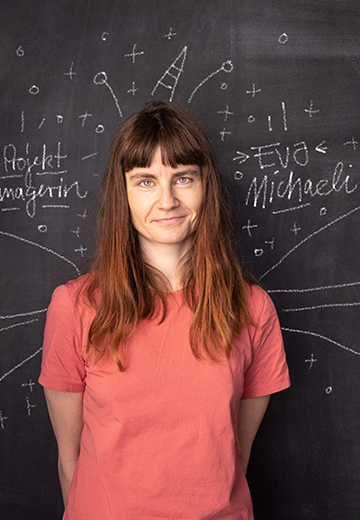 Projekt
managerin
Eva
Michaeli